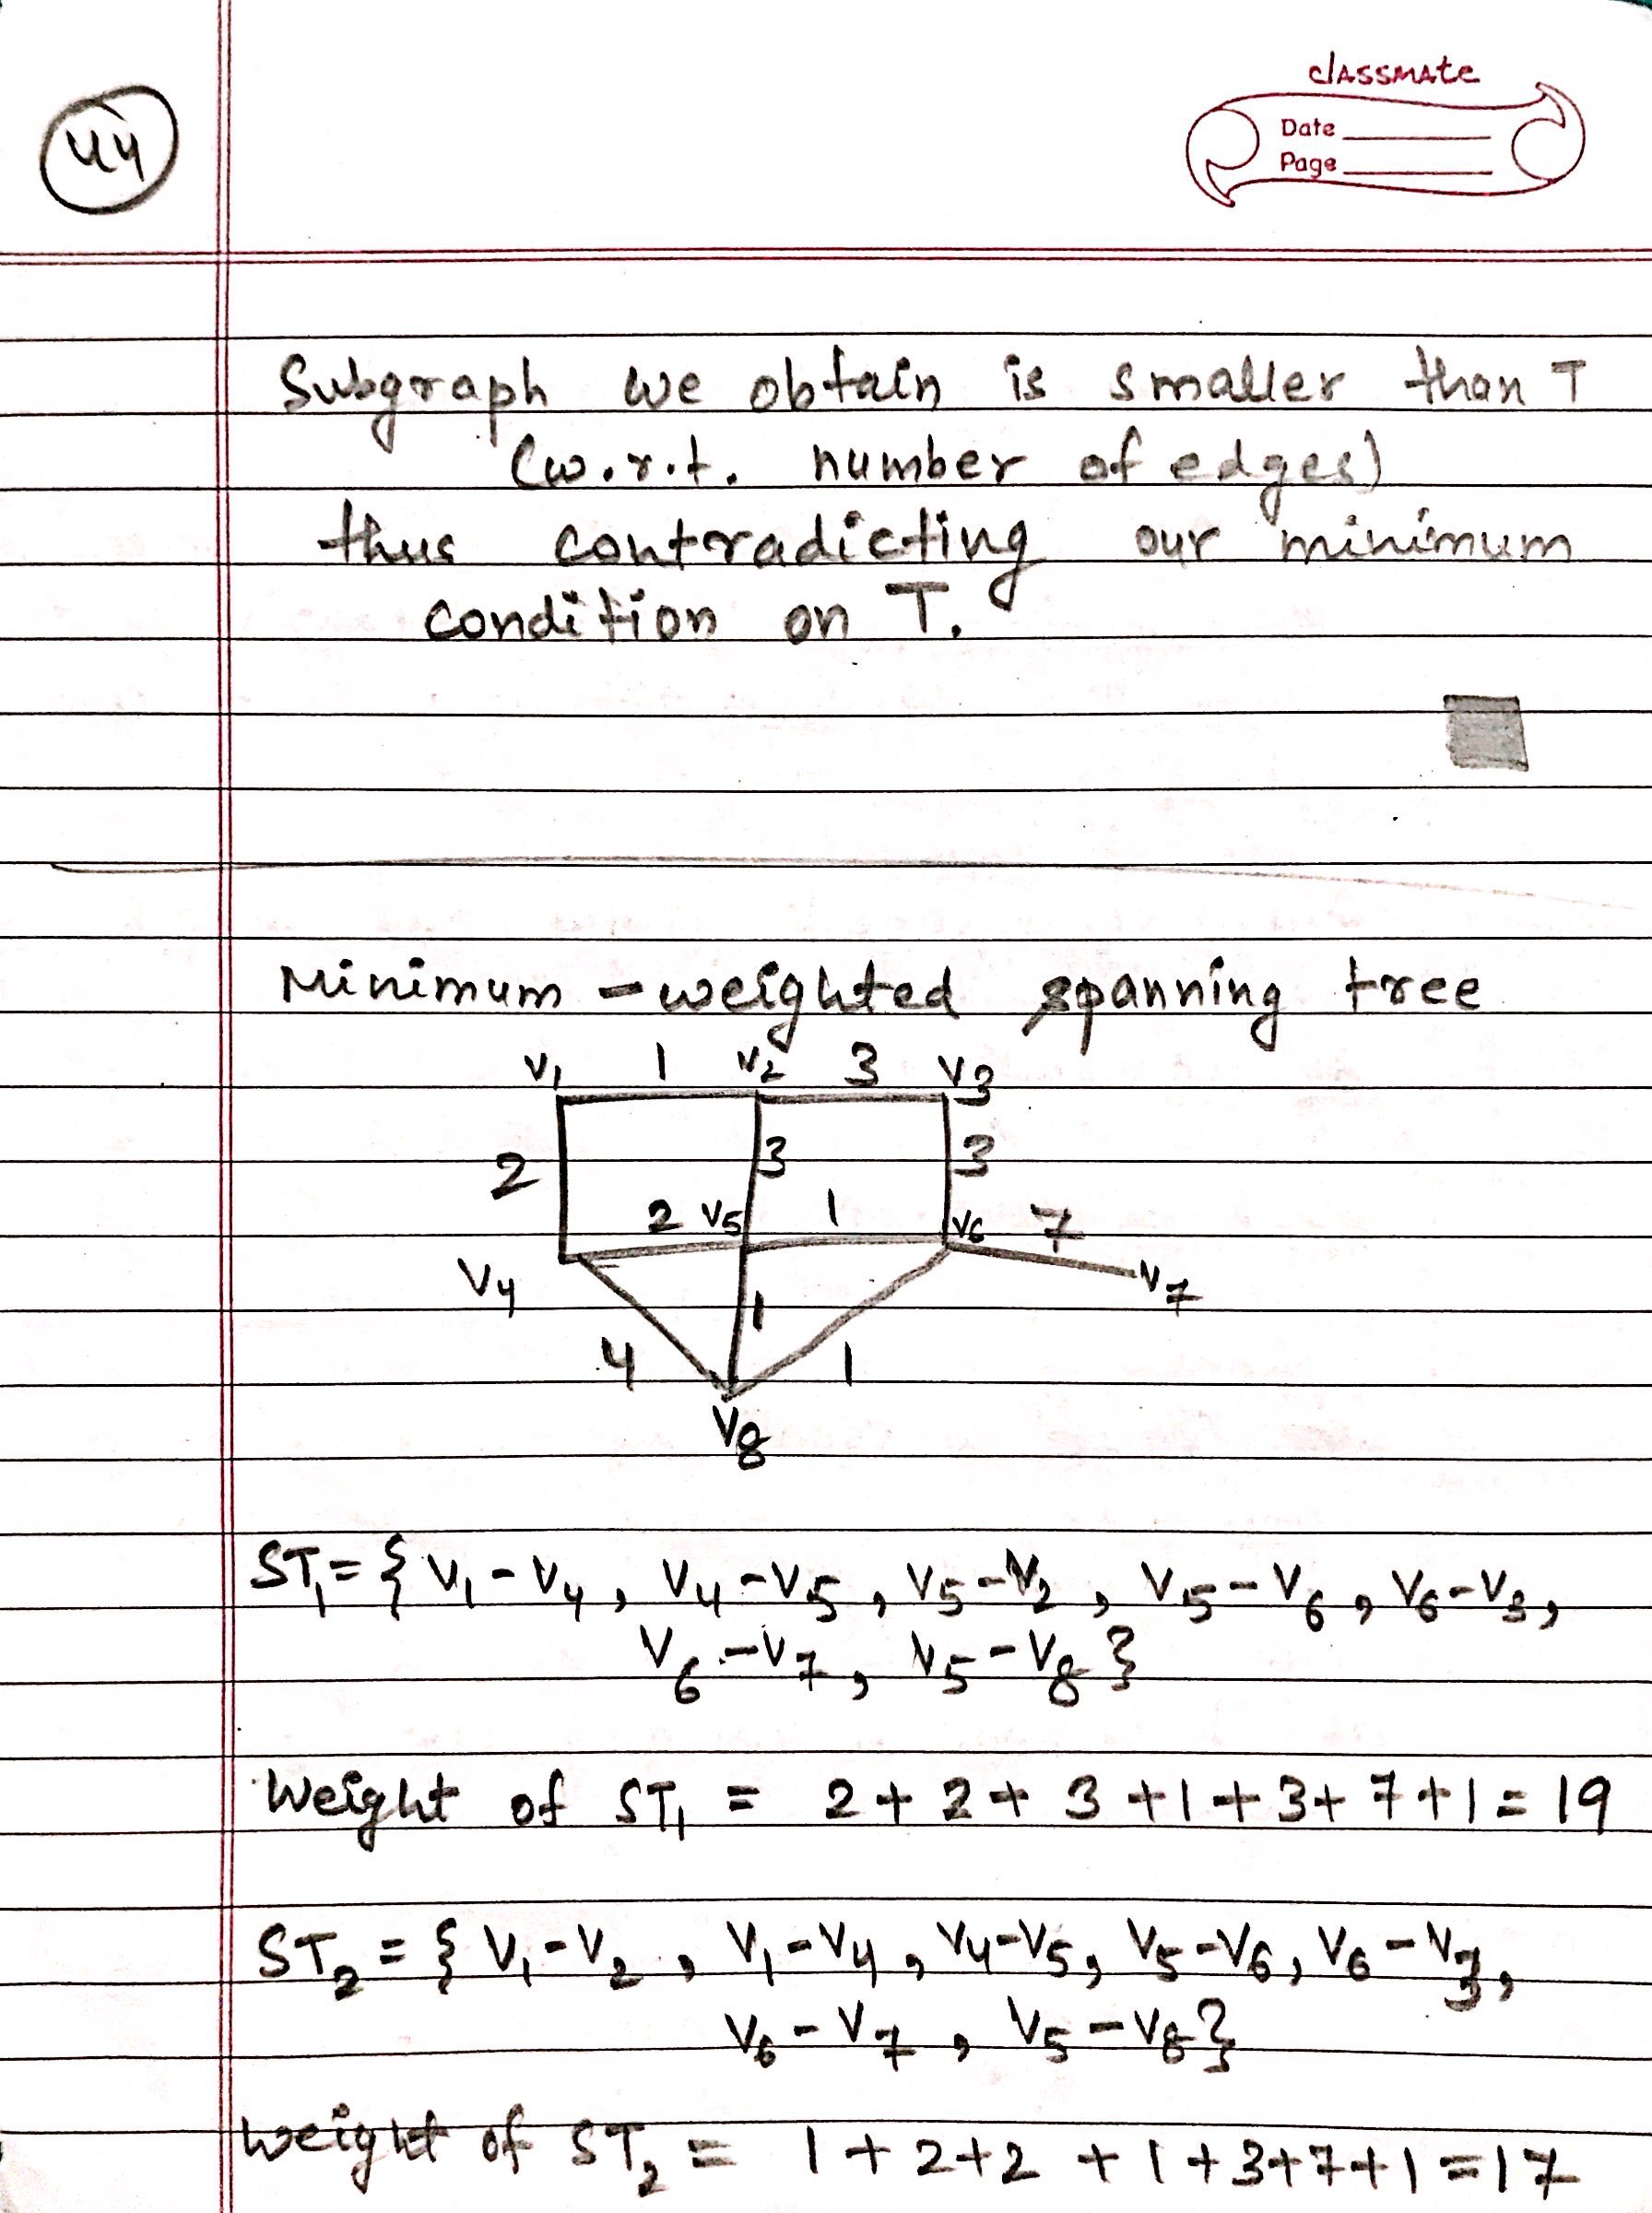 44
classmate
Date
Page
Subgraph we obtain is smaller than T
(w.r.t. number of edges)
thus contradicting our minimum
condition on T.
Minimum - weighted spanning tree
V₁ 1 V₂ 3 V₃
2 3 3
2 V₅ 1 V₆ 7
V₄ V₇
1
4 1
V₈
ST₁ = { V₁ - V₄ , V₄ - V₅ , V₅ - V₂ , V₅ - V₆ , V₆ - V₃ ,
V₆ - V₇ , V₅ - V₈ }
Weight of ST₁ = 2 + 2 + 3 + 1 + 3 + 7 + 1 = 19
ST₂ = { V₁ - V₂ , V₁ - V₄ , V₄ - V₅ , V₅ - V₆ , V₆ - V₃ ,
V₆ - V₇ , V₅ - V₈ }
weight of ST₂ = 1 + 2 + 2 + 1 + 3 + 7 + 1 = 17